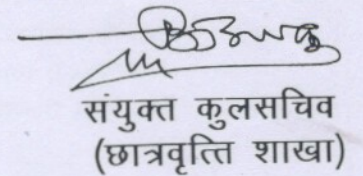 संयुक्त कुलसचिव
(छात्रवृत्ति शाखा)